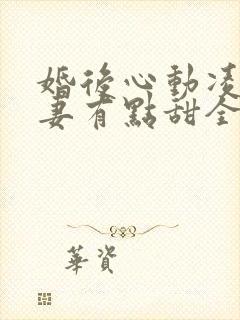 婚後心動凌
妻有點甜全
華資